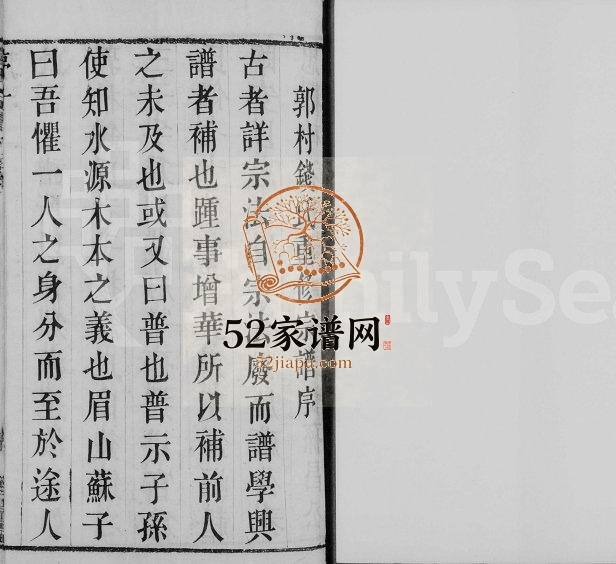 郭村錢氏重修宗譜序
古者詳宗法自宗法廢而譜學興
譜者補也踵事增華所以補前人
之未及也或又曰普也普示子孫
使知水源木本之義也眉山蘇子
曰吾懼一人之身分而至於途人
52家谱网
52jiapu.com
FamilySea